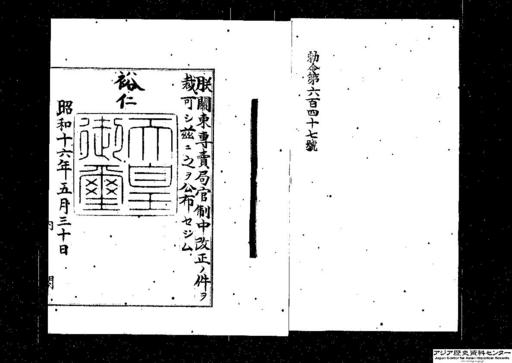 勅令第六百四十七號
朕關東專賣局官制中改正ノ件ヲ
裁可シ茲ニ之ヲ公布セシム
裕仁
天皇
御璽
昭和十六年五月三十日
内閣
アジア歴史資料センター
Japan Center for Asian Historical Records